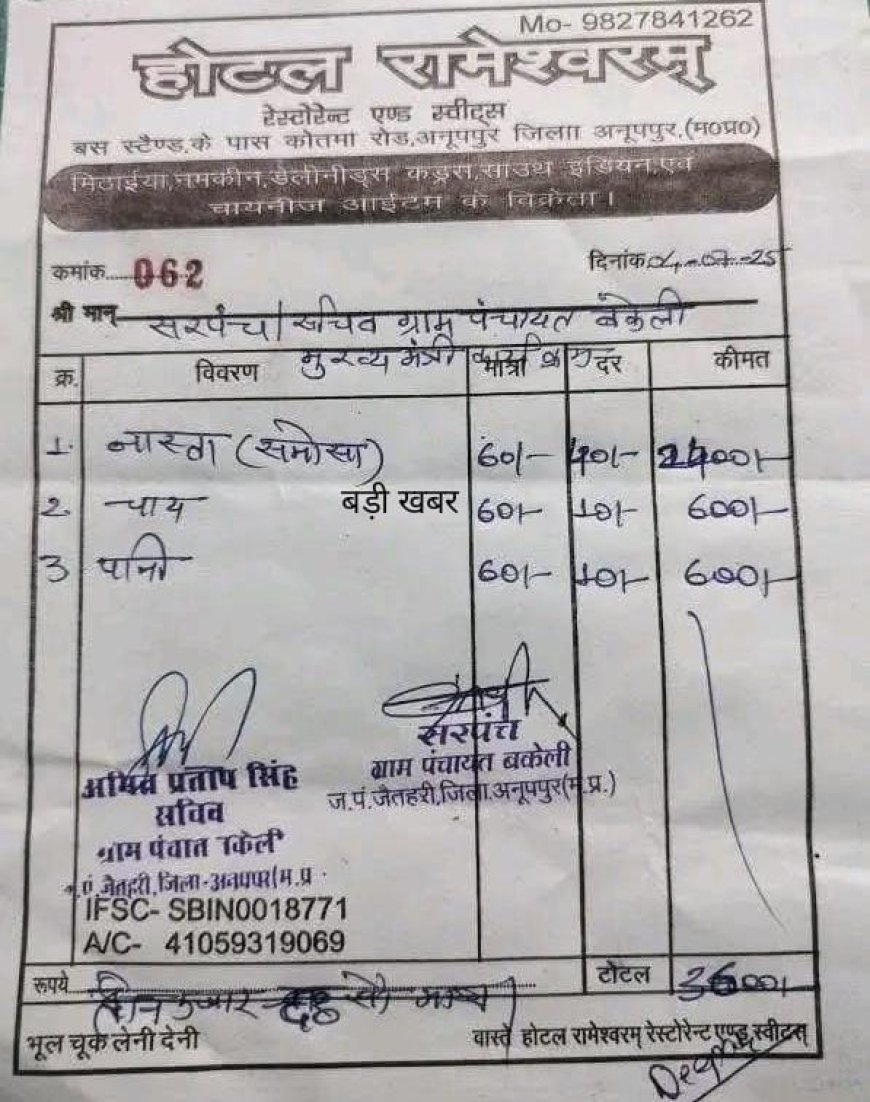 Mo- 9827841262
होटल रामेश्वरम्
रेस्टोरेन्ट एण्ड स्वीट्स
बस स्टैण्ड,के पास कोतमा रोड,अनूपपुर जिलाा अनूपपुर,(म0प्र0)
मिठाईया,नमकीन,डेलीनीड्स कड्रस,साउथ इडियन,एवं
चायनीज आईटम के विक्रेता।
कमांक..... 062 दिनांक 04-07-25
श्री मान् सरपंच/सचिव ग्राम पंचायत बकेली
मुख्य मंत्री
क्र. विवरण मात्रा दर कीमत
1. नास्ता (समोसा) 60/- 40/- 2400/-
2. चाय 60/- 10/- 600/-
बड़ी खबर
3 पानी 60/- 10/- 600/-
सरपंच
ग्राम पंचायत बकेली
ज.पं.जैतहरी,जिला.अनूपपुर(म.प्र.)
प्रताप सिंह
सचिव
जैतहरी,जिला-
IFSC- SBIN0018771
A/C- 41059319069
रूपये टोटल 3600/-
भूल चूक लेनी देनी वास्ते होटल रामेश्वरम् रेस्टोरेन्ट एण्ड स्वीटस्